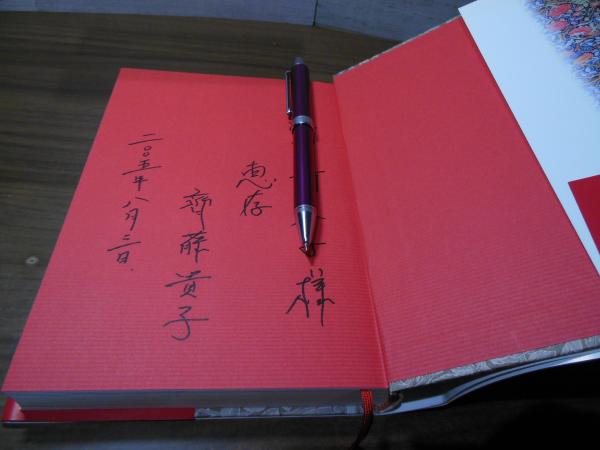 様
恵存
齊藤貴子
二〇〇五年八月三日